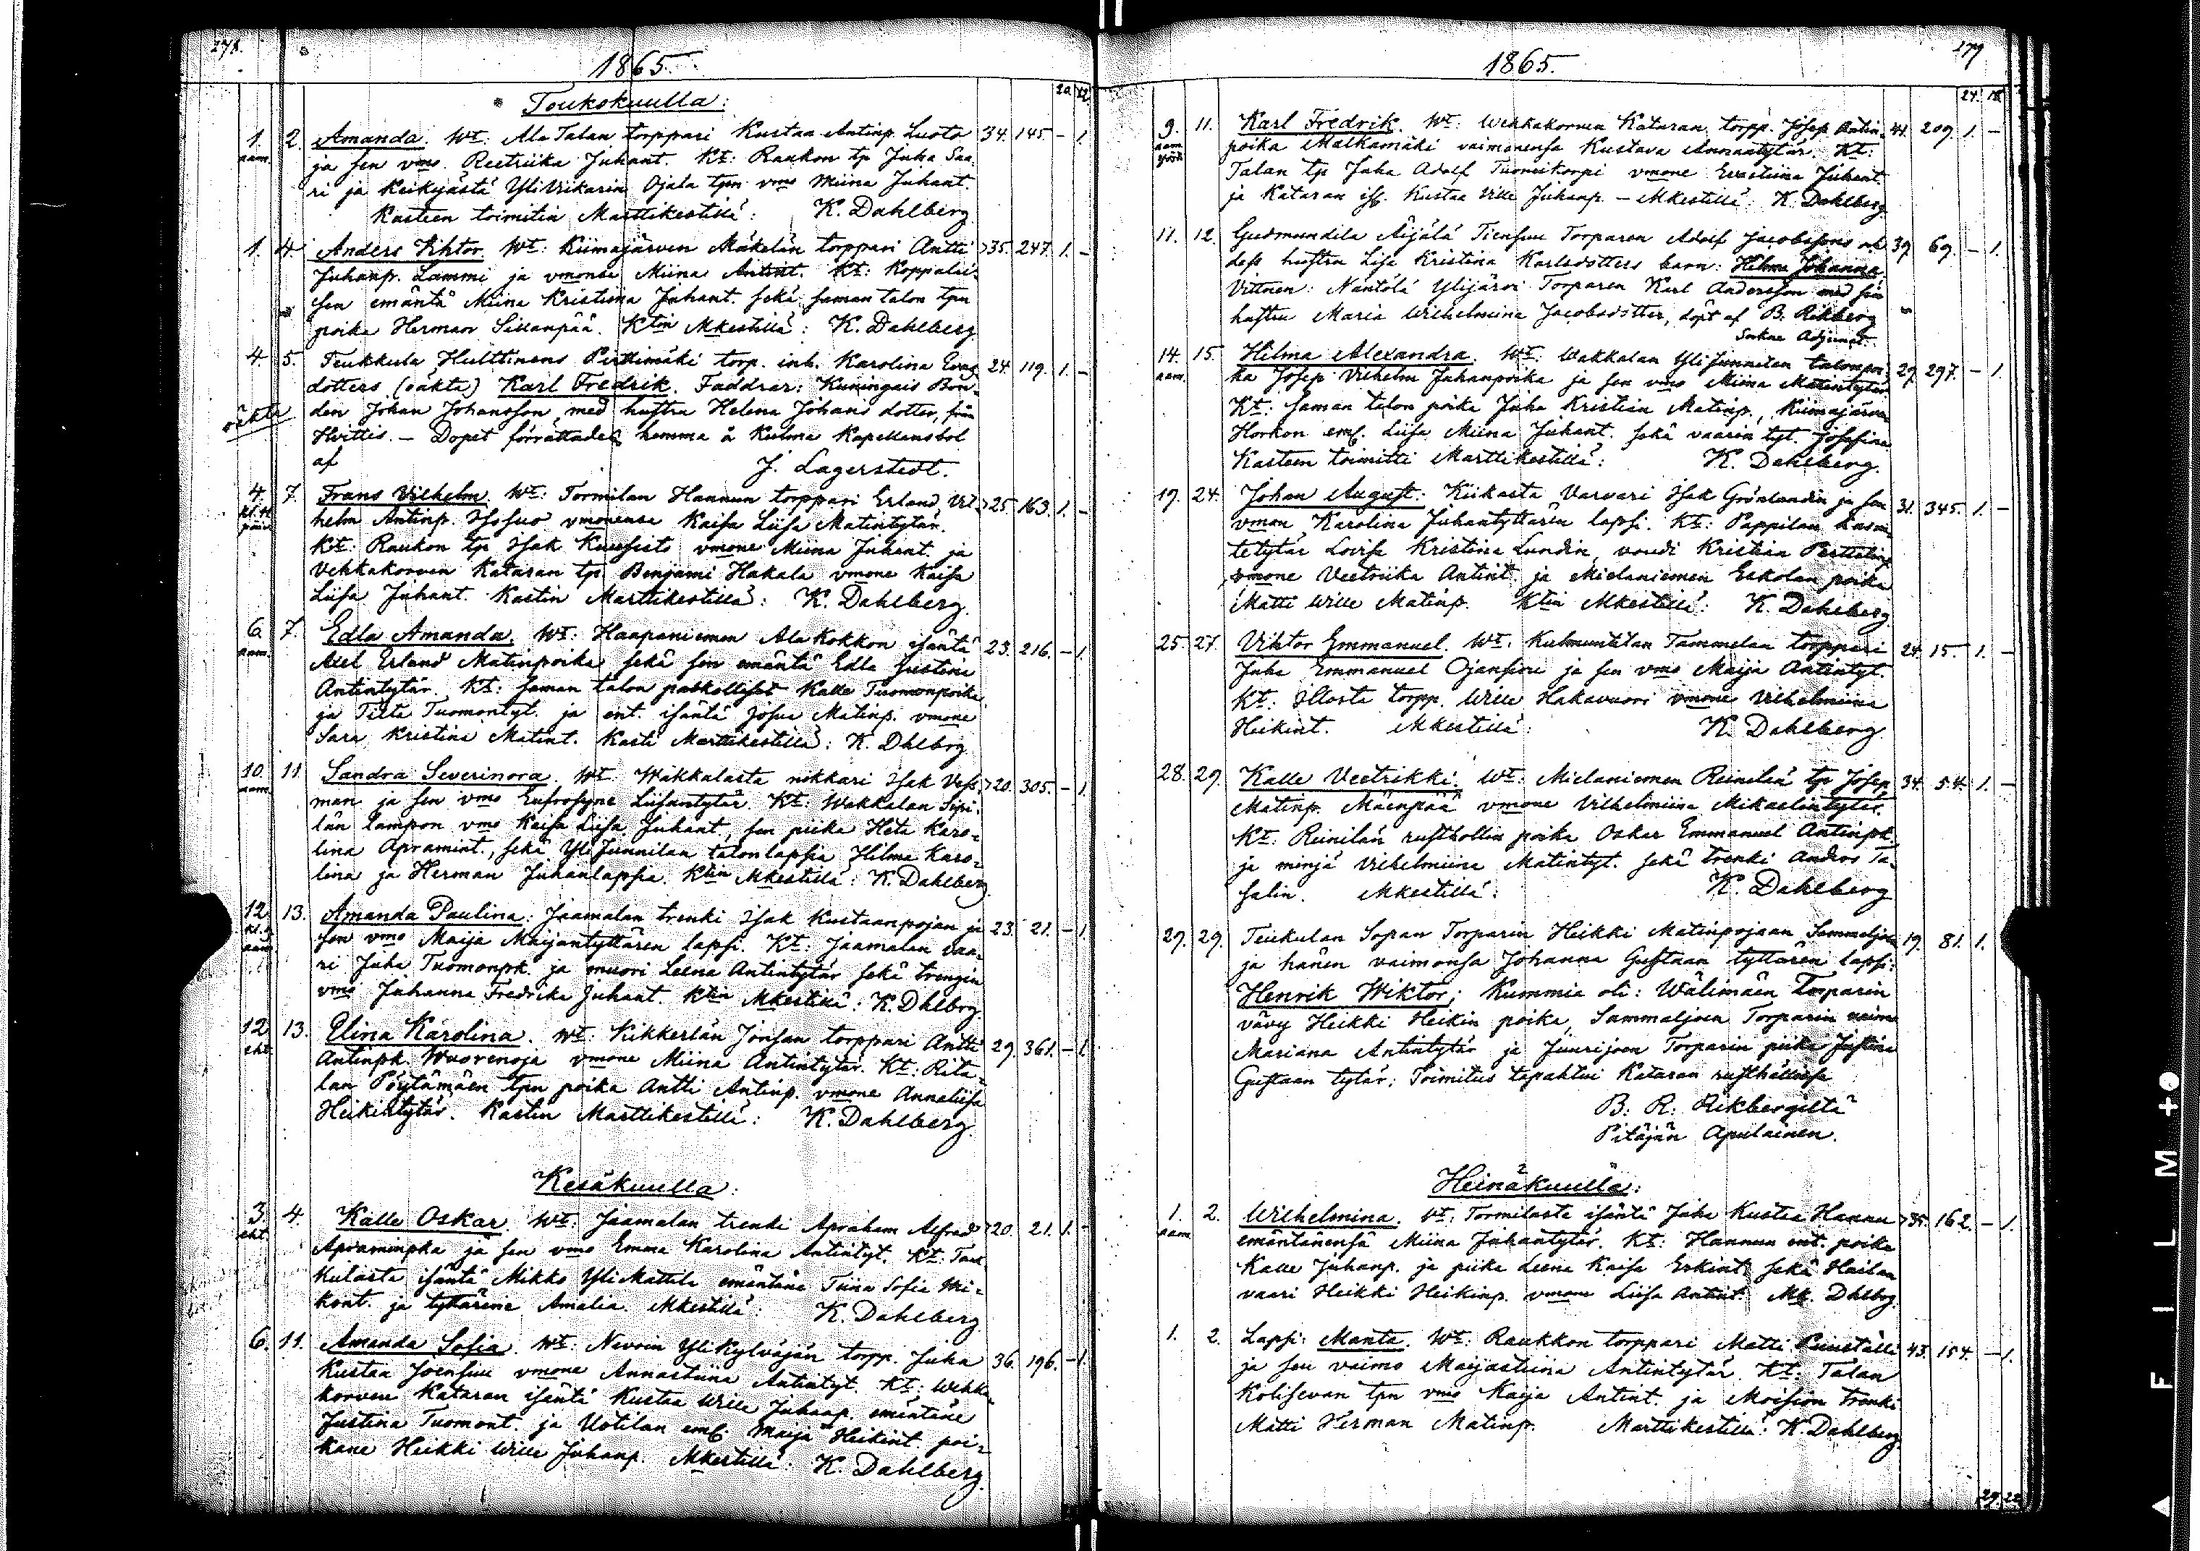 278.
1865.
Toukokuulla:
20 12
1. 2. Amanda. Wt: Ala Talan torppari Kustaa Antinp. Luoto 34. 145 – 1.
aam. ja sen vmo. Reetriika Juhant. Kt: Raukon tp Juha Saa-
ri ja Keikyästä Yli Vikarin Ojala tpn vmo Miina Juhant.
Kasteen toimitin Marttikestillä: K. Dahlberg
1. 4. Anders Viktor Wt: Kiimajärven Mäkelän torppari Antti 35. 247. 1. –
Juhanp. Lammi ja vmonsa Miina Antint. Kt: Koppalai-
sen emäntä Miina Kristiina Juhant. sekä saman talon tpn
poika Herman Sillanpää. Ktin Mkestillä: K. Dahlberg
4. 5. Teukkula Hulttinens Pirttimäki torp. inh. Karolina Evas 24. 119. 1. –
dotters (oäkta) Karl Fredrik. Faddrar: Kuningais Bon-
oäkta den Johan Johansson med hustru Helena Johans dotter, från
Hvittis. – Dopet förrättades hemma å Kulma Kapellansbol
af J. Lagerstedt.
4. 7. Frans Vilhelm. Wt: Tormilan Hannun torppari Erland Vil- 25. 163. 1. –
helm Antinp. Isosuo vmonensa Kaisa Liisa Matintytär.
Kt: Raukon tp Isak Kuusisto vmone Miina Juhant. ja
Vehkakorven Kataran tp Benjami Hakala vmone Kaisa
Liisa Juhant. Kastin Marttikestillä: K. Dahlberg.
6. 7. Edla Amanda. Wt: Haapaniemen Ala Kokkon isäntä 23. 216. – 1.
aam. Axel Erland Matinpoika sekä sen emäntä Edla Justina
Antintytär. Kt: saman talon palkolliset Kalle Tuomonpoika
ja Tilta Tuomontyt. ja ent. isäntä Josua Matinp. vmone
Sara Kristina Matint. Kasti Marttikestillä: K. Dhlbrg.
10. 11. Sandra Severinora. Wt: Wakkalasta nikkari Isak Vess- 20. 305. – 1.
aam. man ja sen vmo Eufrosyne Liisantytär. Kt: Wakkalan Sipi-
län lampon vmo Kaisa Liisa Juhant., sen piika Heta Karo-
lina Apramint., sekä Yli Junnilan talonlapsia Hilma Karo-
lina ja Herman Juhanlapsia. Ktin Mkestillä: K. Dahlberg.
12. 13. Amanda Paulina: Jaamalan trenki Isak Kustaanpojan ja 23. 21. – 1.
sen vmo Maija Maijantyttären lapsi. Kt: Jaamalan vaa-
ri Juha Tuomonpk. ja muori Leena Antintytär sekä trengin
vmo Juhanna Fredrika Juhant. Ktin Mkestillä: K. Dhlbrg.
12. 13. Elina Karolina. Wt: Kikkerlän Jonsan torppari Antti 29. 361. – 1.
eht. Antinpk. Wuorenoja vmone Miina Antintytär. Kt: Rita-
lan Pöytämäen tpn poika Antti Antinp. vmone Annaliisa
Heikintytär. Kastin Marttikestillä: K. Dahlberg.
Kesäkuulla:
3. 4. Kalle Oskar. Wt: Jaamalan trenki Apraham Alfred 20. 21. 1. –
eht. Apraminpka ja sen vmo Emma Karolina Antintyt. Kt:
kulasta isäntä Mikko Yli Mattila emäntäne Tiina Sofia Mi-
kont. ja tyttärine Amalia. Mkestillä: K. Dahlberg
6. 11. Amanda Sofia. Wt: Nevoin Yli Kylväjän torpp. Juha 36. 196. – 1.
Kustaa Joensuu vmone Annastiina Antintyt. Kt: Vehka-
korven Kataran isäntä Kustaa Wille Juhanp. emäntäne
Justina Tuomont. ja Uotilan ems. Maija Heikint. poi-
kane Heikki Wille Juhanp. Mkestillä: K. Dahlberg.
279
1865.
24. 18.
9. 11. Karl Fredrik. Wt: Wehkakorven Kataran torpp. Josep Antin- 41. 209. 1. –
aam. poika Matkamäki vaimonensa Kustava Annantytär. Kt:
Talan tp Juha Adolf Tuomikorpi vmone Evastiina Juhant.
ja Kataran is. Kustaa Wille Juhanp. – Mkestillä: K. Dahlberg
11. 12. Gudmundila Äijälä Tiensuu Torparen Adolf Jacobssons och 39. 69. – 1.
dess hustru Lisa Kristina Karlsdotters barn: Hilma Johanna.
Vittnen: Näntölä Ylijärvi Torparen Karl Andersson med sin
hustru Maria Wilhelmina Jacobsdotter, döpt af B. Rikberg
Sockne Adjunct.
14. 15. Hilma Alexandra. Wt: Wakkalan Yli Junnilan talonpoi- 29. 297. – 1.
aam. ka Josep Vilhelm Juhanpoika ja sen vmo Miina Matintytär.
Kt: saman talon poika Juha Kristian Matinp., Kiimajärven
Horkon ems. Liisa Miina Juhant. sekä vaarin tyt. Josefina
Kasteen toimitti Marttikestillä: K. Dahlberg.
19. 24. Johan August: Kiikasta Varvari Isak Grönlundin ja sen 31. 345. 1. –
vmon Karolina Juhantyttären lapsi. Kt: Pappilan kasva-
tetytär Lovisa Kristina Lundin, voudi Kristian Perttelin
vmone Veetriika Antint. ja Mielaniemen Eskolan poika
Matti Wille Matinp. Ktin Mkestillä: K. Dahlberg
25. 27. Viktor Emmanuel. Wt: Kulmuntilan Tammelan torppari 24. 15. 1. –
Juha Emmanuel Ojansuu ja sen vmo Maija Antintyt.
Kt: Illosta torpp. Wille Hakavuori vmone Vilhelmiina
Heikint. Mkestillä: K. Dahlberg.
28. 29. Kalle Veetrikki. Wt: Mielaniemen Reinilän tp Josep 34. 54. 1. –
Matinp. Mäenpää vmone Vilhelmiina Mikaelintytär.
Kt: Reinilän rusthollin poika Oskar Emmanuel Antinpk.
ja minjä Vilhelmiina Matintyt. sekä trenki Andros Ta-
salin. Mkestillä: K. Dahlberg
29. 29. Teukulan Sopan Torparin Heikki Matinpojaan Sammaljoen 19. 81. 1.
ja hänen vaimonsa Johanna Gustaan tyttären lapsi:
Henrik Wiktor; Kummia oli: Wälimäen Torparin
vävy Heikki Heikin poika, Sammaljoen Torparin vaimo
Mariana Antintytär ja Juurijoen Torparin piika Justina
Gustaan tytär; Toimitus tapahtui Kataran rusthollissa
B: R: Rikbergiltä
Pitäjän Apulainen.
Heinäkuulla:
1. 2. Wilhelmina. Wt: Tormilasta isäntä Juha Kustaa Hannu 35. 162. – 1.
aam. emäntänensä Miina Juhantytär. Kt: Hannun ent. poika
Kalle Juhanp. ja piika Leena Kaisa Erkint. sekä Hailan
vaari Heikki Heikinp. vmone Liisa Antint. Mk. Dhlbrg.
1. 2. Lapsi: Manta. Wt: Raukkon torppari Matti Puuställi 43. 154. – 1.
ja sen vaimo Maijastiina Antintytär. Kt: Talan
Kolisevan tpn vmo Kaija Antint. ja Moision trenki
Matti Herman Matinp. Marttikestillä: K. Dahlberg.
29 22
FILM